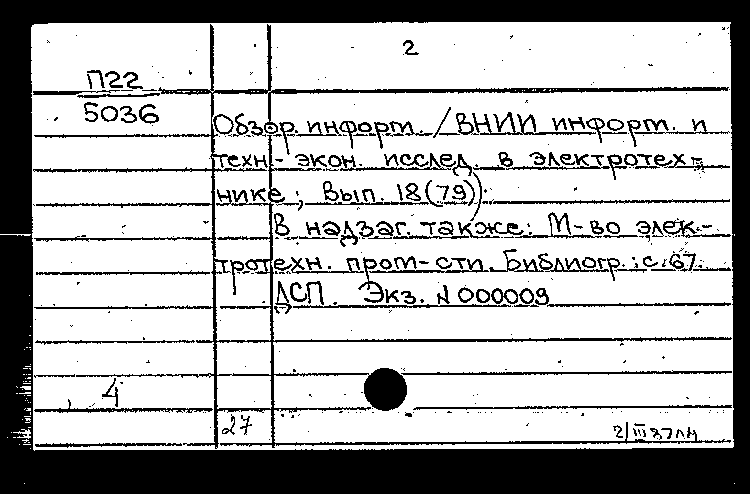 2
П22
5036
Обзор. информ. / ВНИИ информ. и
техн.-экон. исслед. в электротех-
нике; Вып. 18(79))
В надзаг. также: М-во элек-
тротехн. пром-сти. Библиогр.: с. 67.
ДСП. Экз. N 000009
4
27
2/III 87